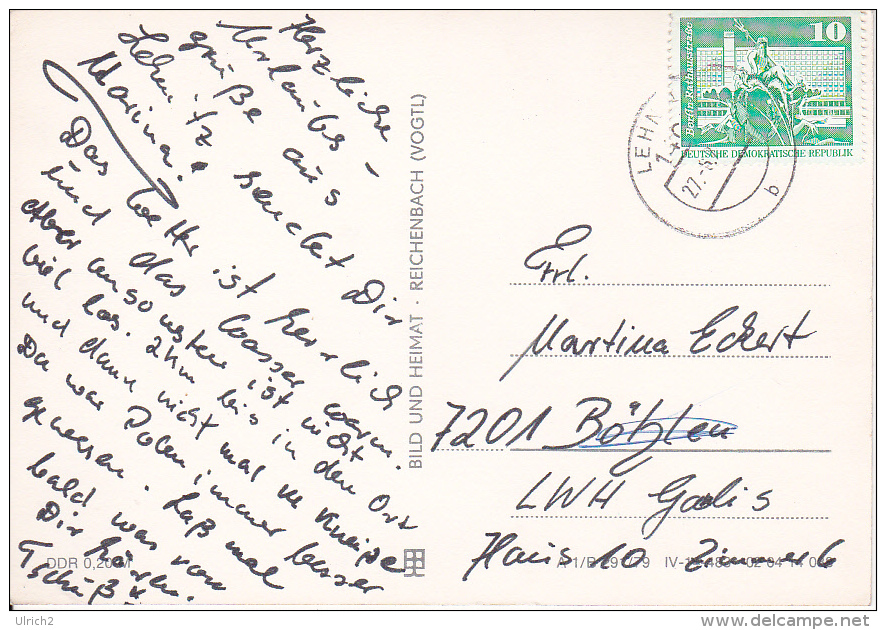 Herzliche
Urlaubs-
grüße aus
Lehnitz sendet Dir
Marina!
Das Wetter ist herrlich
und das Wasser warm.
Aber ansonsten ist nicht
viel los. 2km bis in den Ort
und dann nicht mal ne Kneipe
Da war Polen immer besser
gewesen. Laß mal
bald was von
Dir hören.
Tschüß
BILD UND HEIMAT · REICHENBACH (VOGTL)
DDR 0,20 M
10
Berlin-Rathausstraße
DEUTSCHE DEMOKRATISCHE REPUBLIK
27.-8.
b
Frl.
Martina Eckert
7201 Böhlen
LWH Gaulis
Haus 10 Zimmer 6
Ulrich2
www.delcampe.net